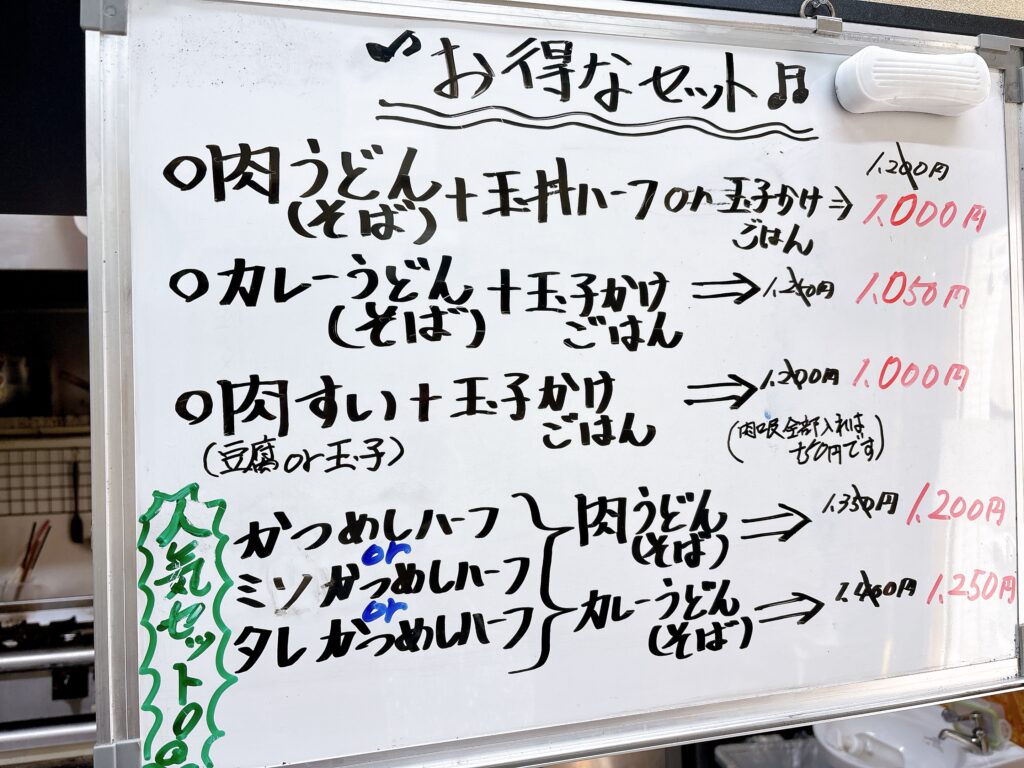 お得なセット♫
○肉うどん(そば)+玉丼ハーフor玉子かけごはん⇒1,200円 1,000円
○カレーうどん(そば)+玉子かけごはん⇒1,250円 1,050円
○肉すい+玉子かけごはん⇒1,200円 1,000円
(豆腐or玉子)
(肉吸全部入れば+50円です)
人気セット
かつめしハーフ
or
ミソかつめしハーフ
or
タレかつめしハーフ
肉うどん(そば)⇒1,350円 1,200円
カレーうどん(そば)⇒1,400円 1,250円